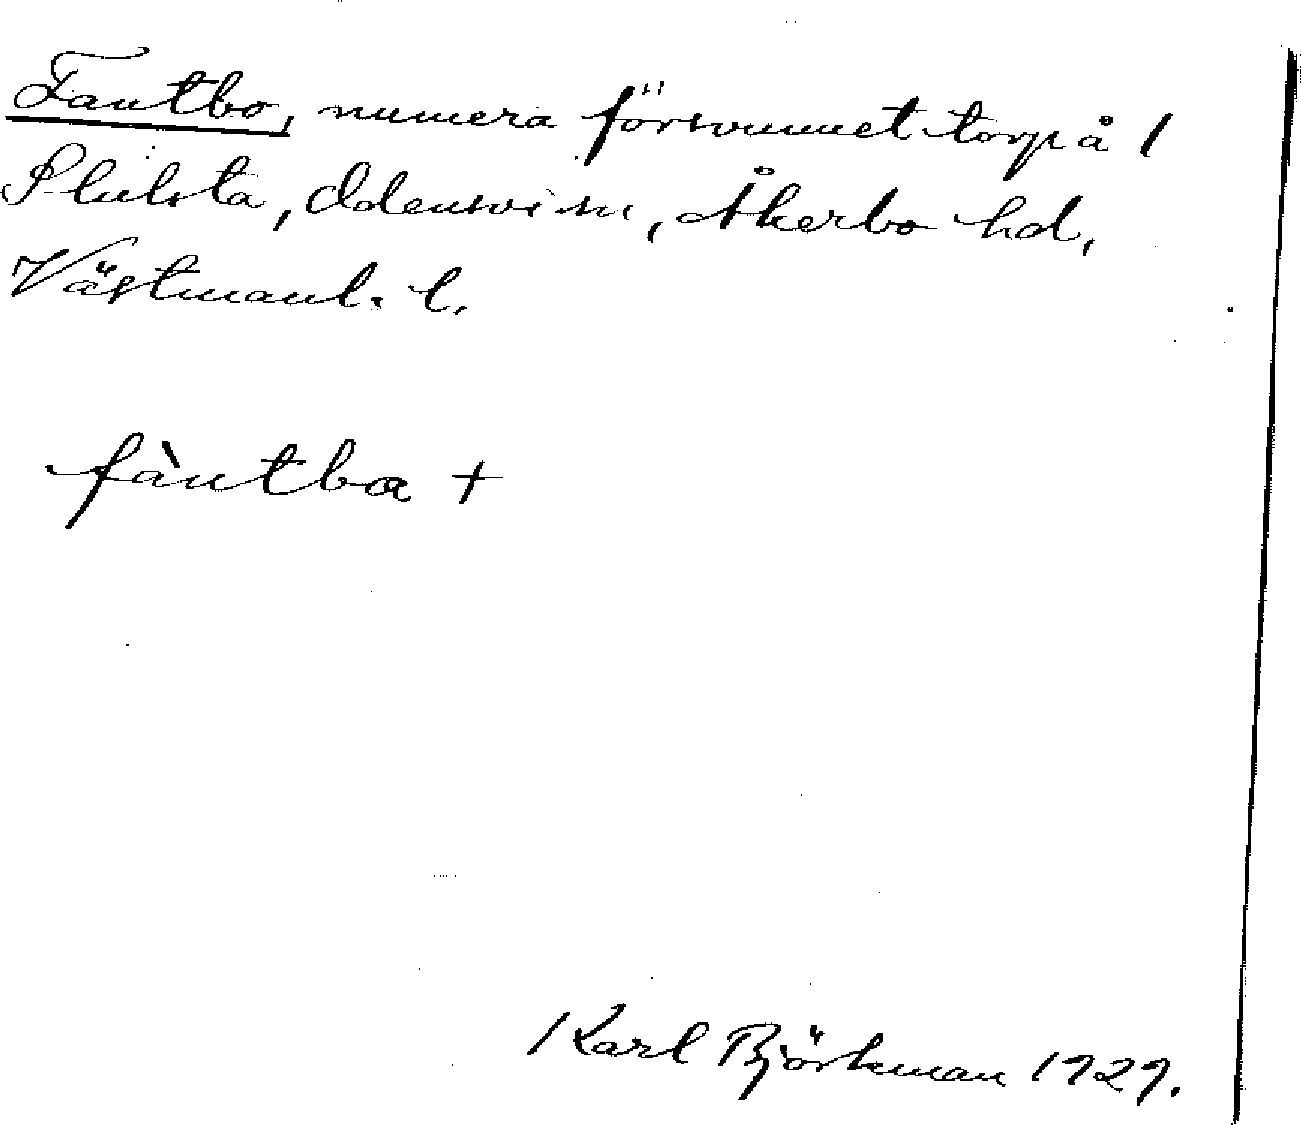 Fantbo, numera försvunnet torp å 1
Skulsta, Odensvi sn, Åkerbo hd,
Västmanl. l.
fàntba +
Karl Björkman 1929.